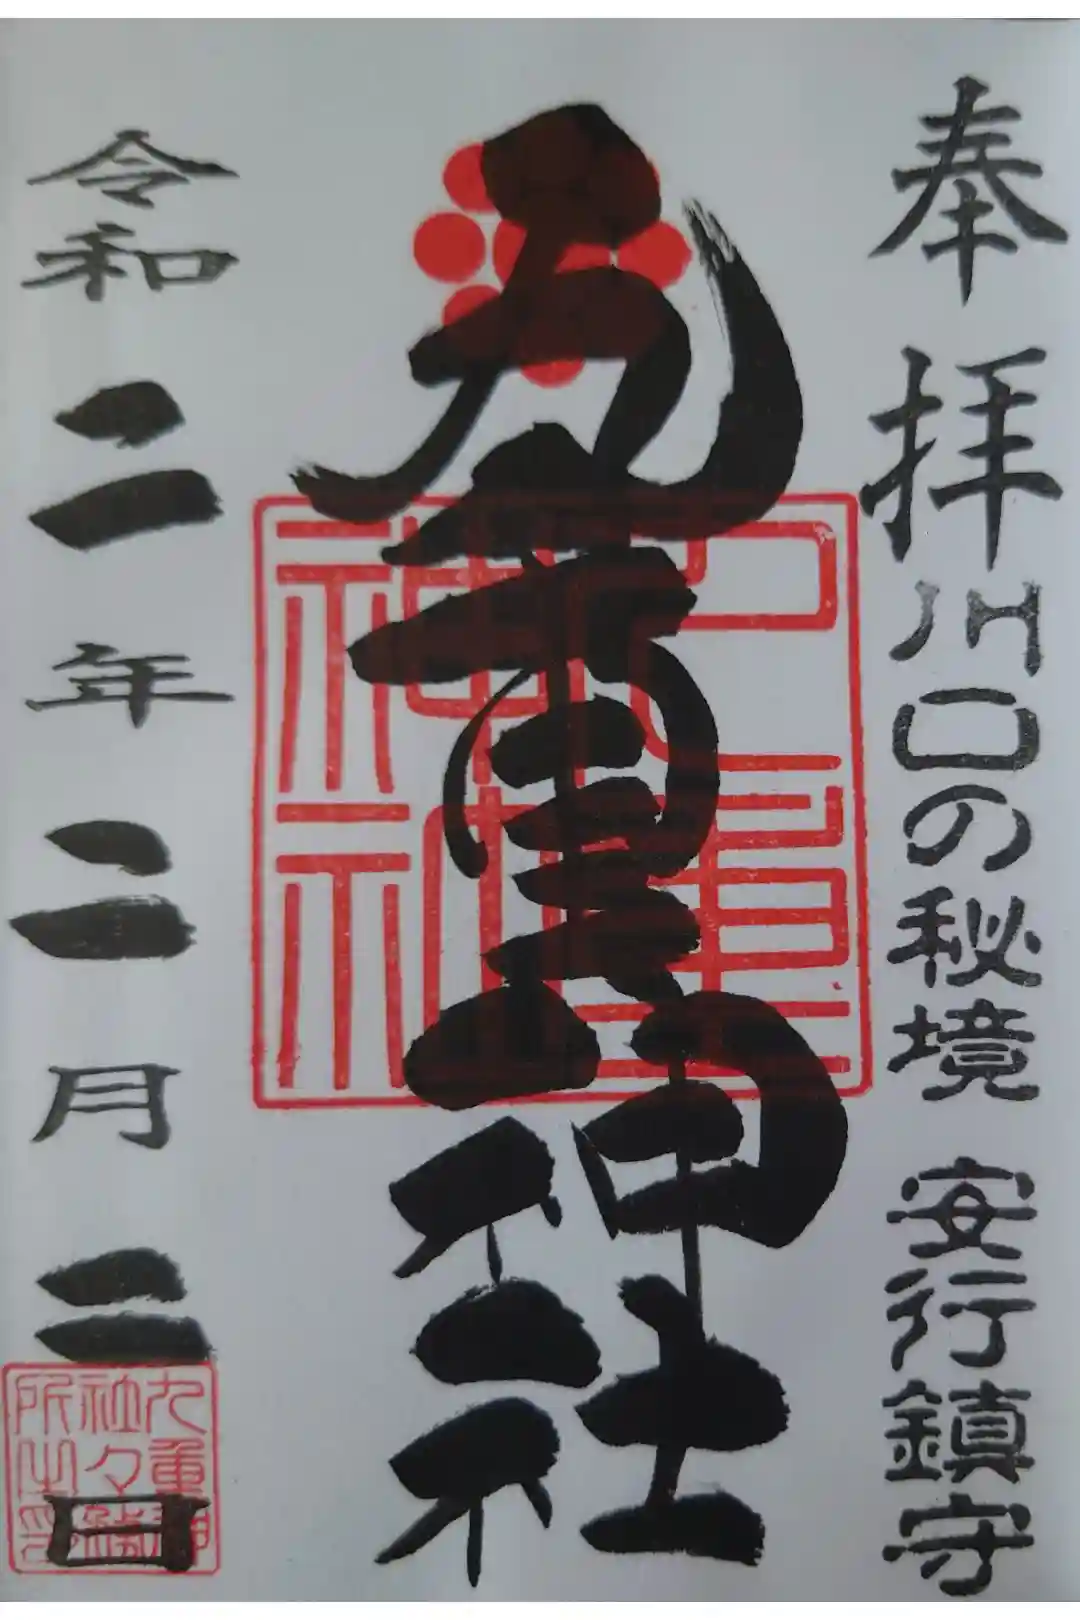 奉拝
川口の秘境 安行鎮守
九重神社
九重神社
令和二年二月二日
九重神
社々務
所之印